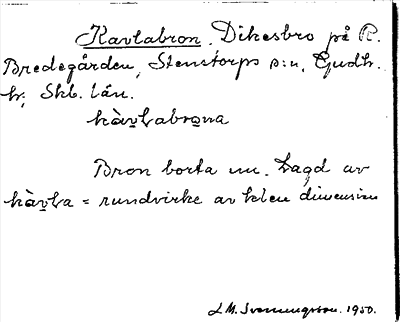 Kavlabron. Dikesbro på R.
Bredegården, Stenstorps s:n, Gudh.
h; Skb. län.
kàv̱labro̱na
Bron borta nu. Lagd av
kàv̱la = rundvirke av klen dimension
L M. Svenungsson. 1950.